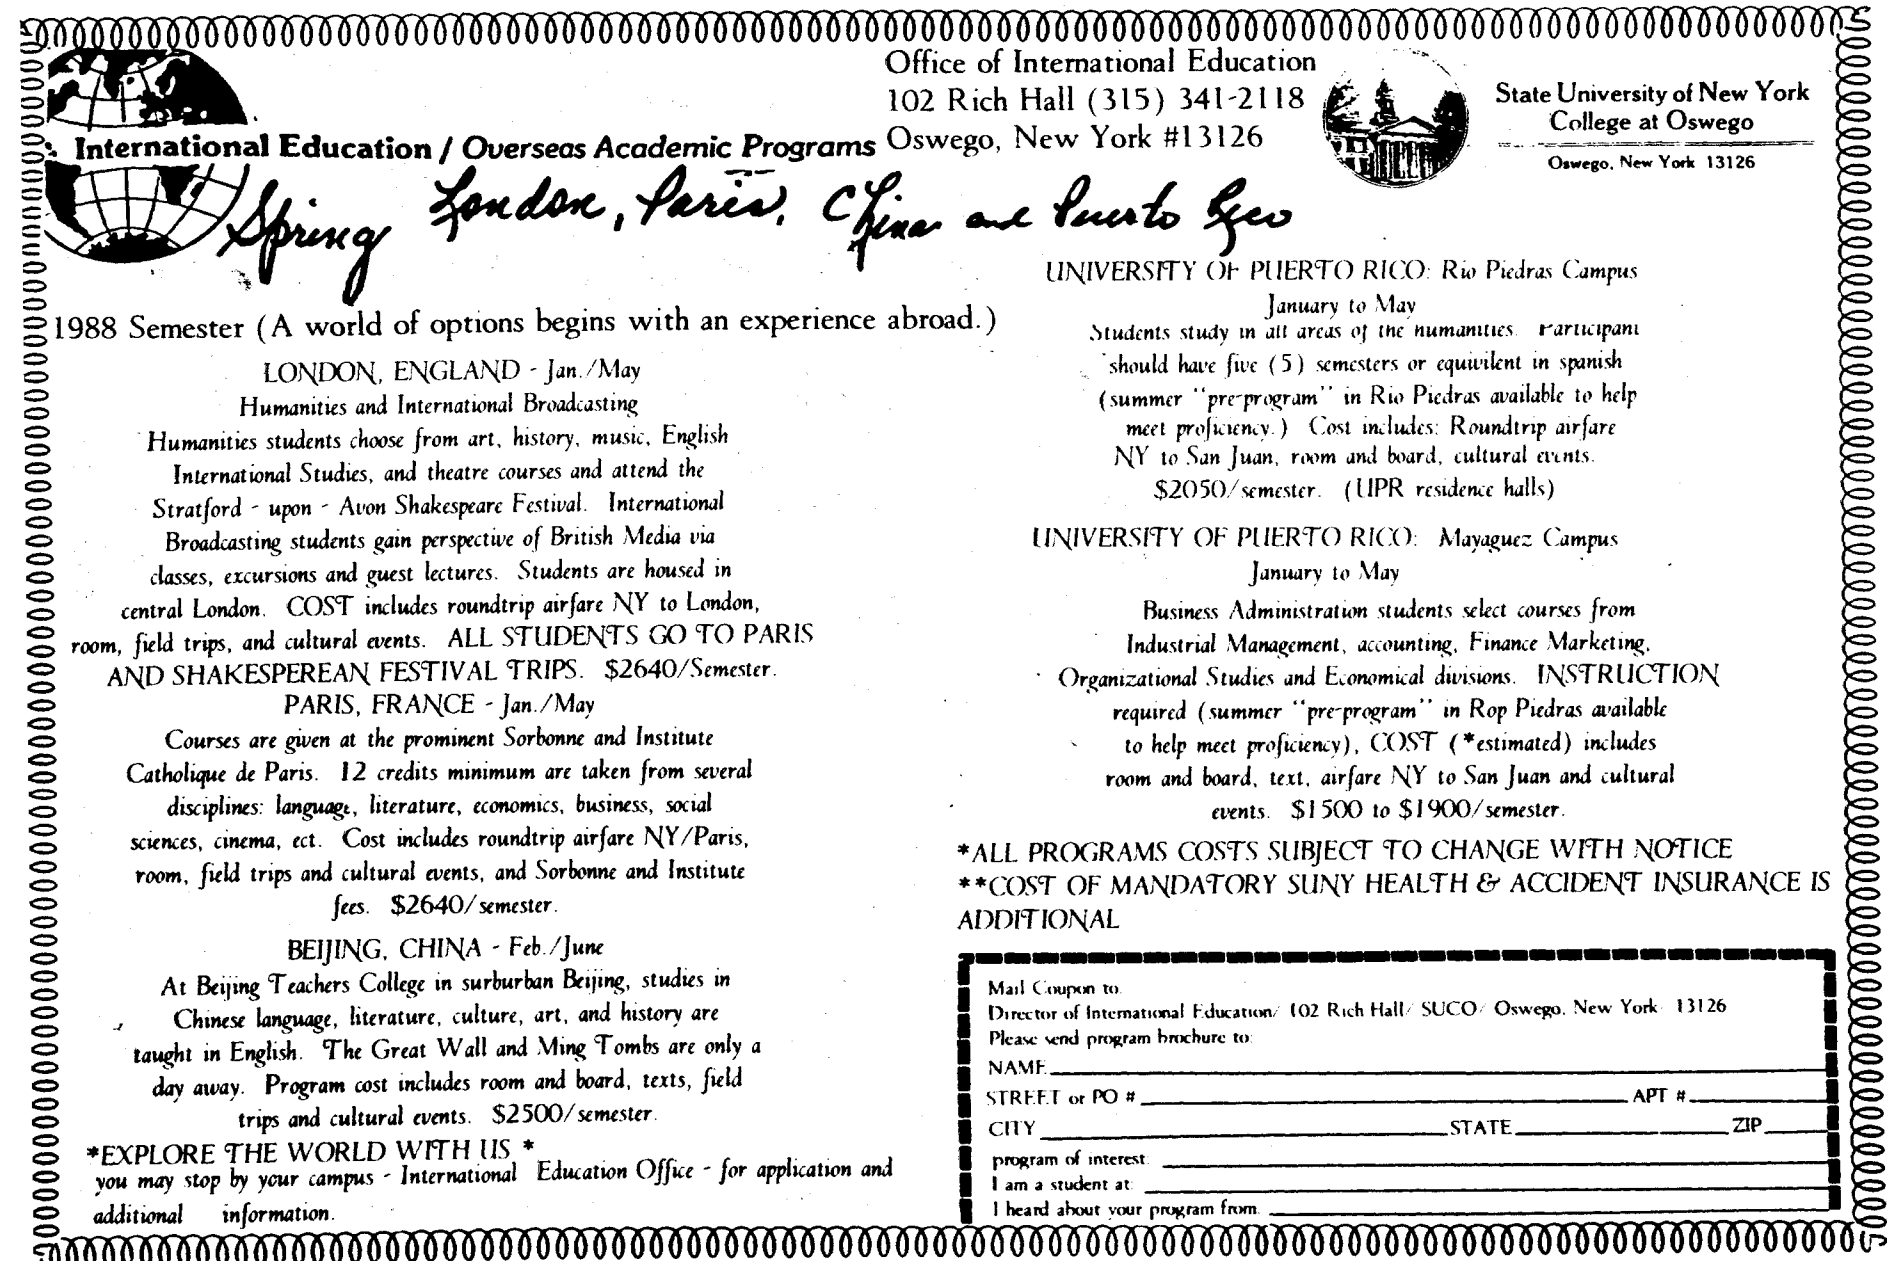 Office of International Education
102 Rich Hall (315) 341-2118
Oswego, New York #13126
International Education / Overseas Academic Programs
State University of New York
College at Oswego
Oswego, New York 13126
Spring London, Paris, China and Puerto Rico
1988 Semester (A world of options begins with an experience abroad.)
LONDON, ENGLAND - Jan./May
Humanities and International Broadcasting
Humanities students choose from art, history, music, English
International Studies, and theatre courses and attend the
Stratford - upon - Avon Shakespeare Festival. International
Broadcasting students gain perspective of British Media via
classes, excursions and guest lectures. Students are housed in
central London. COST includes roundtrip airfare NY to London,
room, field trips, and cultural events. ALL STUDENTS GO TO PARIS
AND SHAKESPEREAN FESTIVAL TRIPS. $2640/Semester.
PARIS, FRANCE - Jan./May
Courses are given at the prominent Sorbonne and Institute
Catholique de Paris. 12 credits minimum are taken from several
disciplines: language, literature, economics, business, social
sciences, cinema, ect. Cost includes roundtrip airfare NY/Paris,
room, field trips and cultural events, and Sorbonne and Institute
fees. $2640/semester.
BEIJING, CHINA - Feb./June
At Beijing Teachers College in surburban Beijing, studies in
Chinese language, literature, culture, art, and history are
taught in English. The Great Wall and Ming Tombs are only a
day away. Program cost includes room and board, texts, field
trips and cultural events. $2500/semester.
*EXPLORE THE WORLD WITH US *
you may stop by your campus - International Education Office - for application and
additional information.
UNIVERSITY OF PUERTO RICO: Rio Piedras Campus
January to May
Students study in all areas of the humanities. Participant
should have five (5) semesters or equivilent in spanish
(summer "pre-program" in Rio Piedras available to help
meet proficiency.) Cost includes: Roundtrip airfare
NY to San Juan, room and board, cultural events.
$2050/semester. (UPR residence halls)
UNIVERSITY OF PUERTO RICO: Mayaguez Campus
January to May
Business Administration students select courses from
Industrial Management, accounting, Finance Marketing,
Organizational Studies and Economical divisions. INSTRUCTION
required (summer "pre-program" in Rop Piedras available
to help meet proficiency), COST (*estimated) includes
room and board, text, airfare NY to San Juan and cultural
events. $1500 to $1900/semester.
*ALL PROGRAMS COSTS SUBJECT TO CHANGE WITH NOTICE
**COST OF MANDATORY SUNY HEALTH & ACCIDENT INSURANCE IS
ADDITIONAL
Mail Coupon to:
Director of International Education/ 102 Rich Hall/ SUCO/ Oswego, New York 13126
Please send program brochure to:
NAME
STREET or PO # APT #
CITY STATE ZIP
program of interest:
I am a student at:
I heard about your program from: